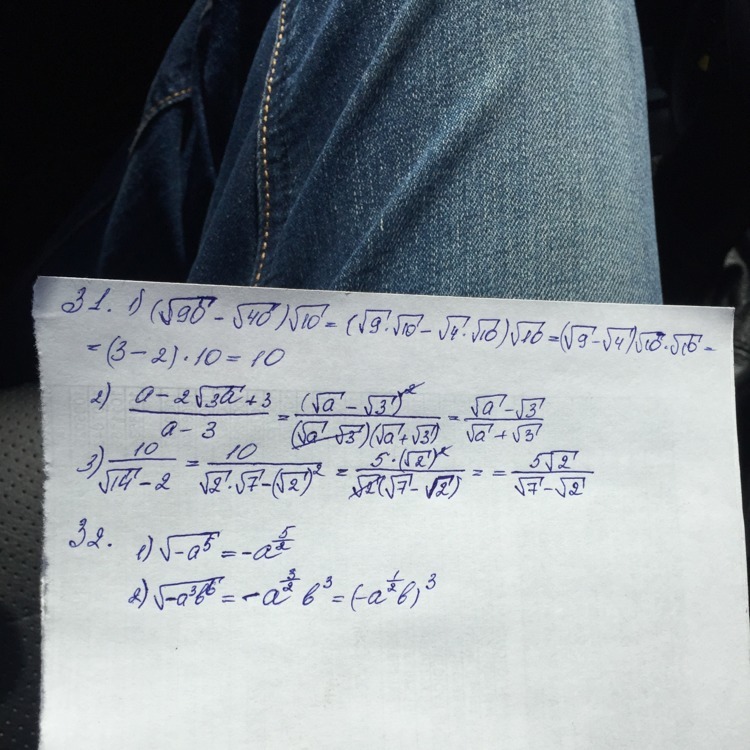 31. 1) (√90 - √40)√10 = (√9·√10 - √4·√10)√10 = (√9 - √4)√10·√10 =
= (3 - 2)·10 = 10
2) (a - 2√3a + 3)/(a - 3) = (√a - √3)²/((√a - √3)(√a + √3)) = (√a - √3)/(√a + √3)
3) 10/(√14 - 2) = 10/(√2·√7 - (√2)²) = 5·(√2)²/(√2(√7 - √2)) = = 5√2/(√7 - √2)
32. 1) √-a⁵ = -a^(5/2)
2) √-a³b⁶ = -a^(3/2) b³ = (-a^(1/2) b)³